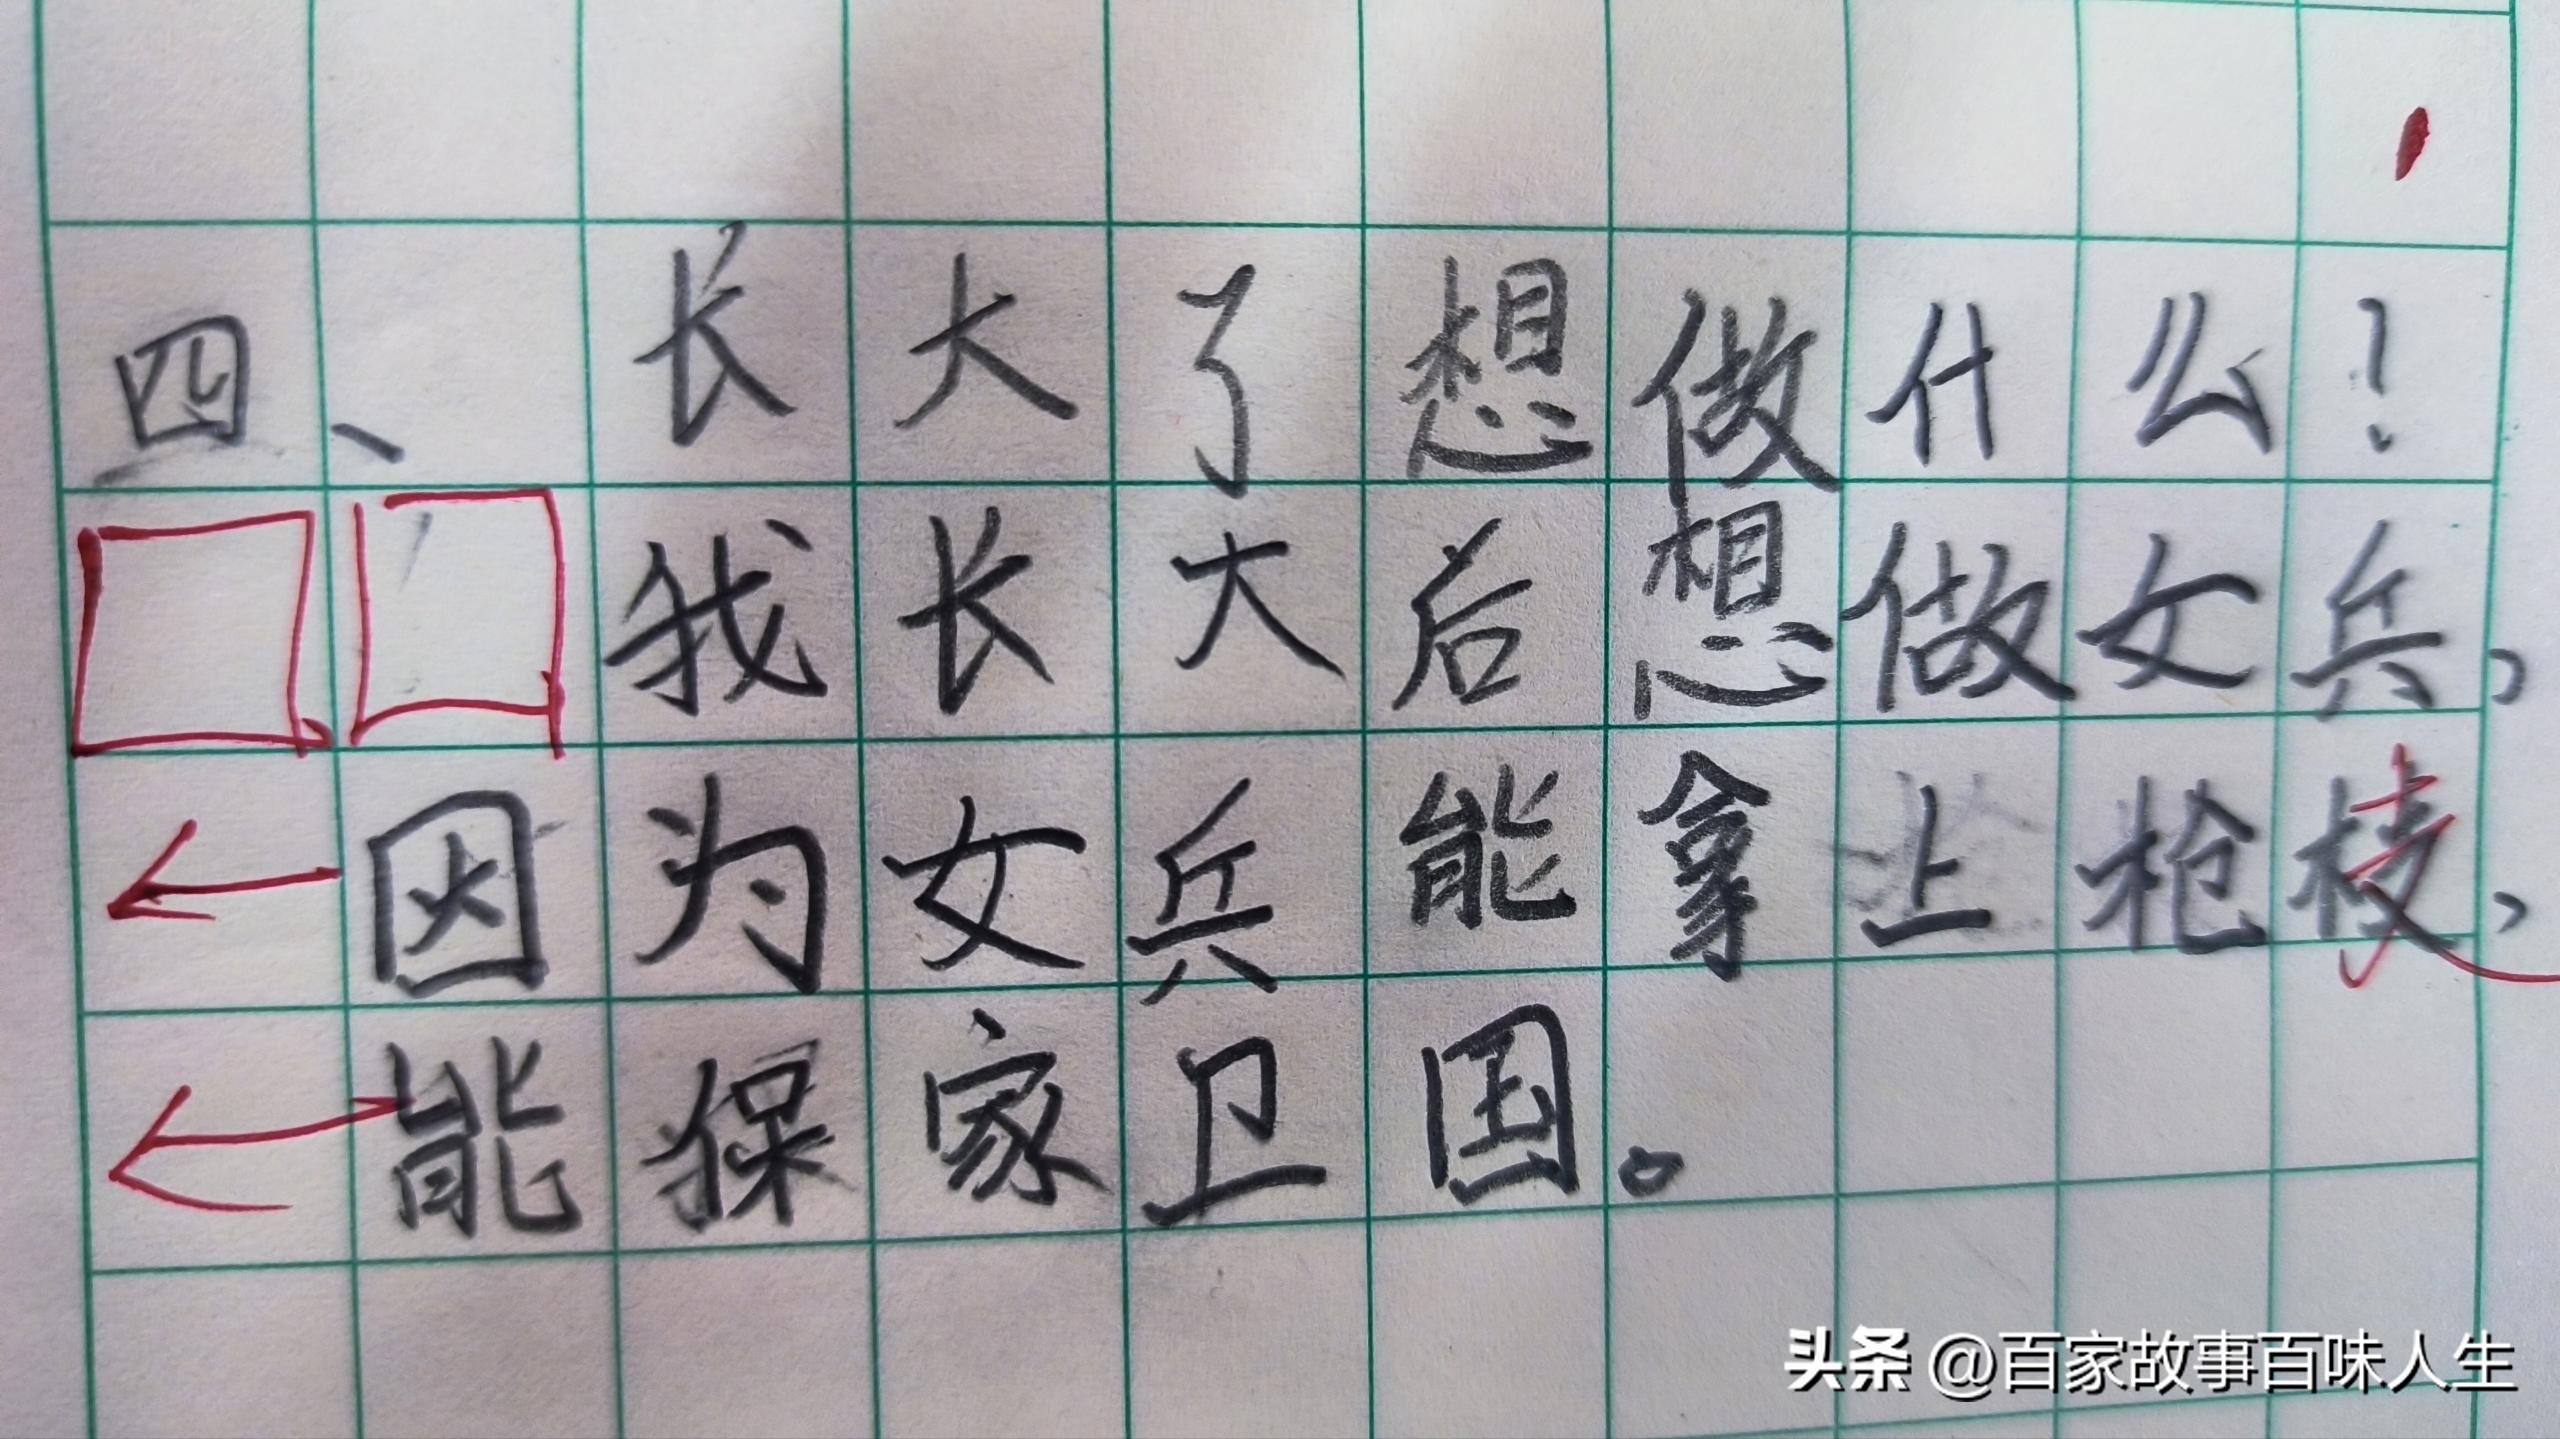 四、长大了想做什么！
我长大后想做女兵，
因为女兵能拿上枪枝，
能保家卫国。
头条 @百家故事百味人生